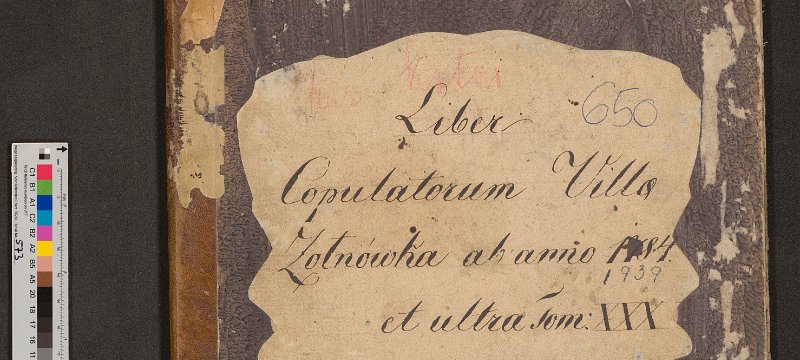 650
Liber
Copulatorum Villæ
Żołnówka ab anno 1784.
1939
et ultra Tom: XXX
573
C1
B1
A1
C2
B2
A2
B5
A5
20
18
17
16
11